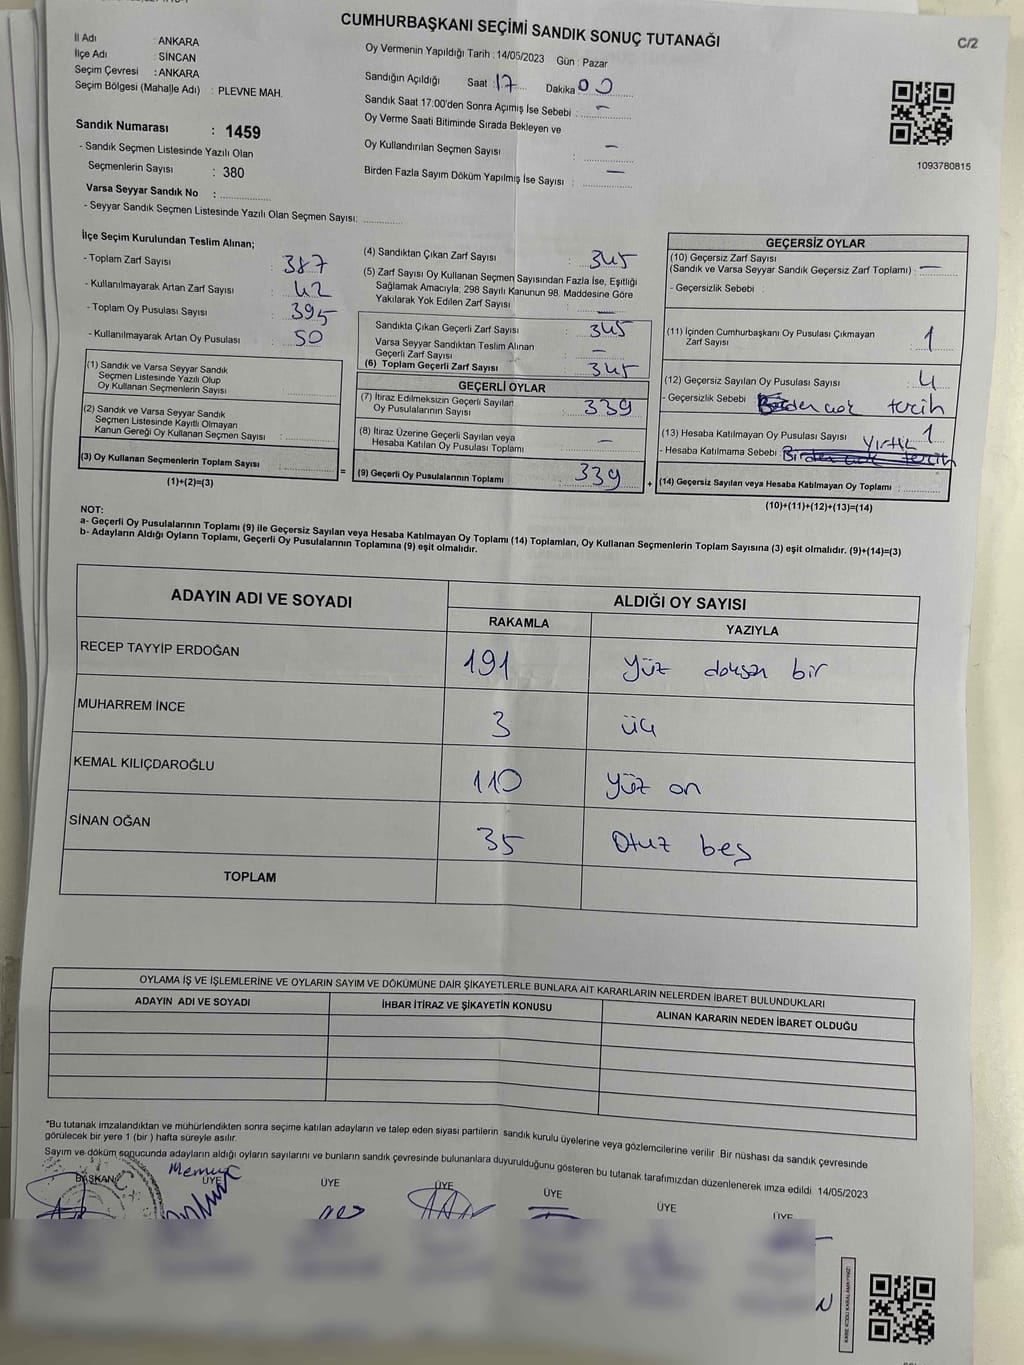 CUMHURBAŞKANI SEÇİMİ SANDIK SONUÇ TUTANAĞI
C/2
İl Adı : ANKARA
İlçe Adı : SİNCAN
Seçim Çevresi : ANKARA
Seçim Bölgesi (Mahalle Adı) : PLEVNE MAH.
Sandık Numarası : 1459
- Sandık Seçmen Listesinde Yazılı Olan
Seçmenlerin Sayısı : 380
Varsa Seyyar Sandık No :
- Seyyar Sandık Seçmen Listesinde Yazılı Olan Seçmen Sayısı:
Oy Vermenin Yapıldığı Tarih : 14/05/2023 Gün : Pazar
Sandığın Açıldığı Saat : 17 Dakika 00
Sandık Saat 17:00'den Sonra Açılmış İse Sebebi : -
Oy Verme Saati Bitiminde Sırada Bekleyen ve
Oy Kullandırılan Seçmen Sayısı : -
Birden Fazla Sayım Döküm Yapılmış İse Sayısı : -
1093780815
İlçe Seçim Kurulundan Teslim Alınan;
- Toplam Zarf Sayısı : 387
- Kullanılmayarak Artan Zarf Sayısı : 42
- Toplam Oy Pusulası Sayısı : 395
- Kullanılmayarak Artan Oy Pusulası : 50
(1) Sandık ve Varsa Seyyar Sandık
Seçmen Listesinde Yazılı Olup
Oy Kullanan Seçmenlerin Sayısı :
(2) Sandık ve Varsa Seyyar Sandık
Seçmen Listesinde Kayıtlı Olmayan
Kanun Gereği Oy Kullanan Seçmen Sayısı :
(3) Oy Kullanan Seçmenlerin Toplam Sayısı :
(1)+(2)=(3)
=
(4) Sandıktan Çıkan Zarf Sayısı : 345
(5) Zarf Sayısı Oy Kullanan Seçmen Sayısından Fazla İse, Eşitliği
Sağlamak Amacıyla; 298 Sayılı Kanunun 98. Maddesine Göre
Yakılarak Yok Edilen Zarf Sayısı : -
Sandıkta Çıkan Geçerli Zarf Sayısı : 345
Varsa Seyyar Sandıktan Teslim Alınan
Geçerli Zarf Sayısı : -
(6) Toplam Geçerli Zarf Sayısı : 345
GEÇERLİ OYLAR
(7) İtiraz Edilmeksizin Geçerli Sayılan
Oy Pusulalarının Sayısı : 339
(8) İtiraz Üzerine Geçerli Sayılan veya
Hesaba Katılan Oy Pusulası Toplamı : -
(9) Geçerli Oy Pusulalarının Toplamı : 339
+
GEÇERSİZ OYLAR
(10) Geçersiz Zarf Sayısı
(Sandık ve Varsa Seyyar Sandık Geçersiz Zarf Toplamı) : -
- Geçersizlik Sebebi :
(11) İçinden Cumhurbaşkanı Oy Pusulası Çıkmayan
Zarf Sayısı : 1
(12) Geçersiz Sayılan Oy Pusulası Sayısı : 4
- Geçersizlik Sebebi : Birden çok tercih
(13) Hesaba Katılmayan Oy Pusulası Sayısı : 1
Yırtık
- Hesaba Katılmama Sebebi : Birden çok tercih
(14) Geçersiz Sayılan veya Hesaba Katılmayan Oy Toplamı :
(10)+(11)+(12)+(13)=(14)
NOT:
a- Geçerli Oy Pusulalarının Toplamı (9) ile Geçersiz Sayılan veya Hesaba Katılmayan Oy Toplamı (14) Toplamları, Oy Kullanan Seçmenlerin Toplam Sayısına (3) eşit olmalıdır. (9)+(14)=(3)
b- Adayların Aldığı Oyların Toplamı, Geçerli Oy Pusulalarının Toplamına (9) eşit olmalıdır.
ADAYIN ADI VE SOYADI
ALDIĞI OY SAYISI
RAKAMLA YAZIYLA
RECEP TAYYİP ERDOĞAN 191 yüz doksan bir
MUHARREM İNCE 3 üç
KEMAL KILIÇDAROĞLU 110 yüz on
SİNAN OĞAN 35 Otuz beş
TOPLAM
OYLAMA İŞ VE İŞLEMLERİNE VE OYLARIN SAYIM VE DÖKÜMÜNE DAİR ŞİKAYETLERLE BUNLARA AİT KARARLARIN NELERDEN İBARET BULUNDUKLARI
ADAYIN ADI VE SOYADI İHBAR İTİRAZ VE ŞİKAYETİN KONUSU ALINAN KARARIN NEDEN İBARET OLDUĞU
*Bu tutanak imzalandıktan ve mühürlendikten sonra seçime katılan adayların ve talep eden siyasi partilerin sandık kurulu üyelerine veya gözlemcilerine verilir. Bir nüshası da sandık çevresinde
görülecek bir yere 1 (bir) hafta süreyle asılır.
Sayım ve döküm sonucunda adayların aldığı oyların sayılarını ve bunların sandık çevresinde bulunanlara duyurulduğunu gösteren bu tutanak tarafımızdan düzenlenerek imza edildi. 14/05/2023
BAŞKAN ÜYE ÜYE ÜYE ÜYE ÜYE ÜYE